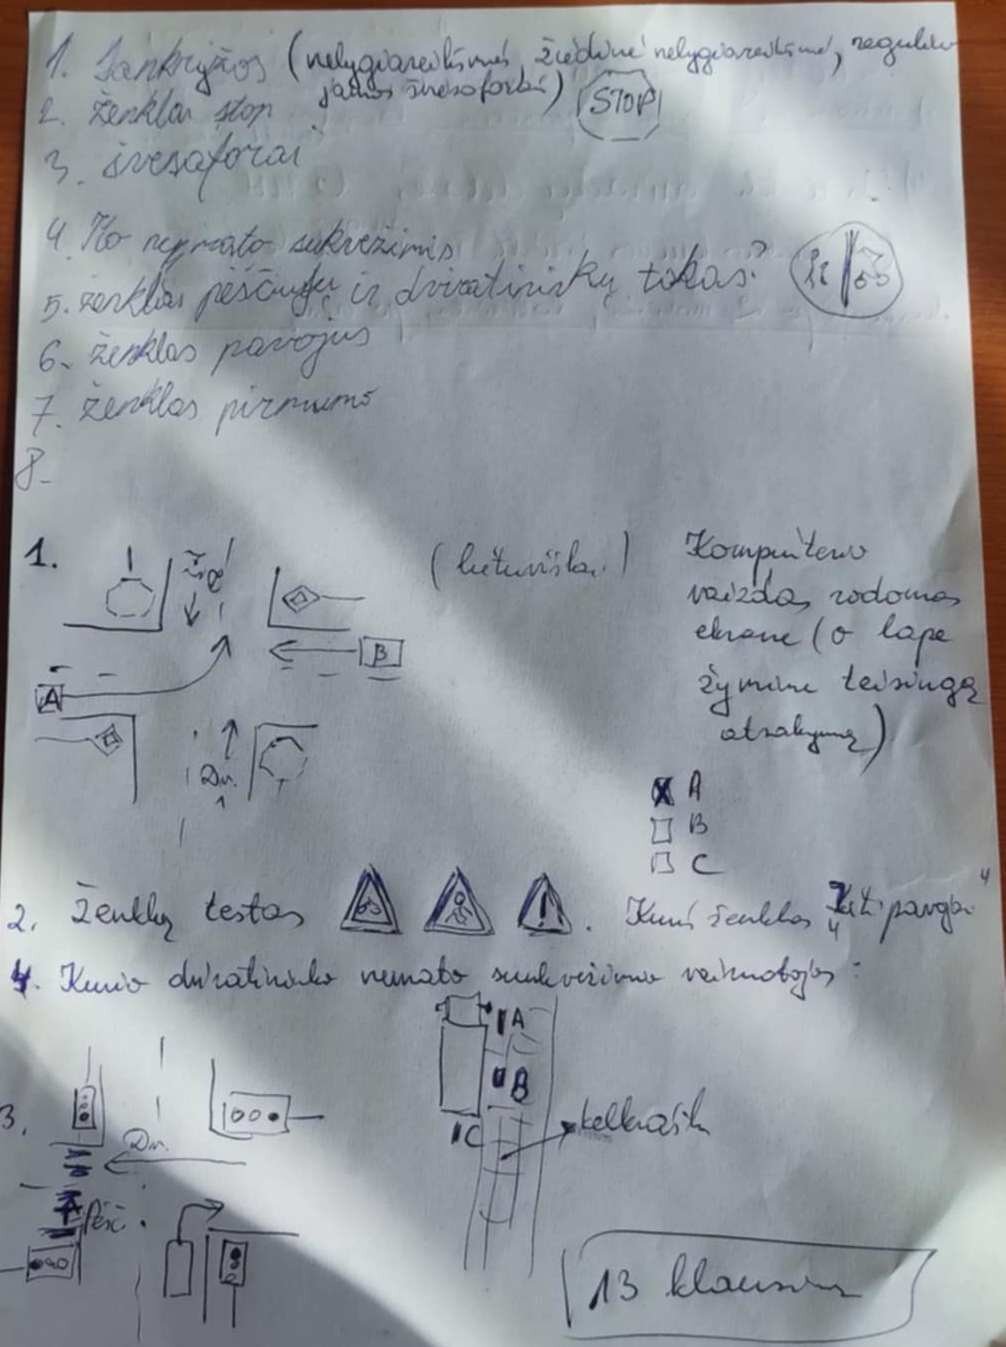 1. Sankryžos (nelygiareikšmės, žiedinė nelygiareikšmė, reguliuo
jamos šviesoforai)
2. ženklai stop STOP
3. šviesaforai
4. Ko nemato sukvežimis
5. ženklas pėsčiųjų ir dviratininkų takas?
6. ženklas pavojus
7. ženklas pirmumo
8.
1.
(lietuviškai)
Kompiuterio
vaizdas rodomas
ekrane (o lape
žymime teisingą
atsakymą)
B
A
Dv.
A
B
C
2. Ženklų testas . Kuris ženklas kiti pavojai
4. Kurio dviratininko nemato sunkvežimio vairuotojas:
A
B
C
kelkraštis
3.
Dv.
Pėsč.
13 klausimų